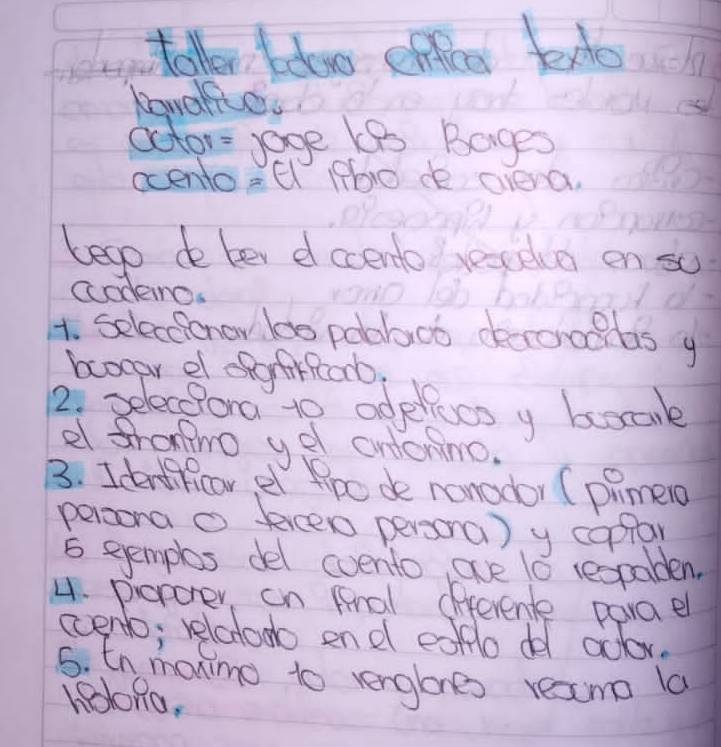 taller lectura crítica texto
Narrativo.
autor = jorge luis Borges
cuento = El libro de arena.
luego de leer el cuento resuelva en su
cuaderno.
1. Seleccionar las palabras desconocidas y
buscar el significado.
2. Selecciona 10 adjetivos y buscarle
el sinonimo y el antonimo.
3. Identificar el tipo de narrador (primera
persona o tercera persona) y copiar
5 ejemplos del cuento que lo respalden.
4. proponer un final diferente para el
cuento; relatado en el estilo del autor.
5. En maximo 10 renglones resuma la
historia.